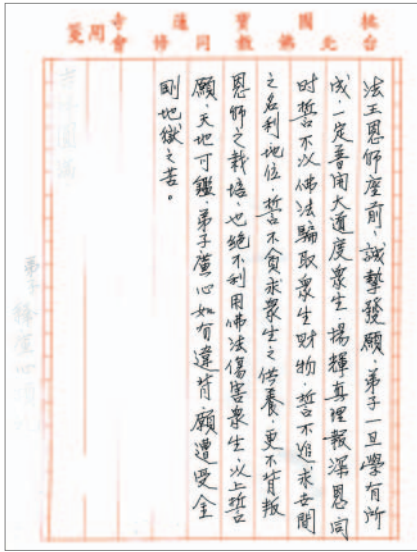 桃園寶蓮寺
台北佛教同修會
用箋
法王恩師座前，誠摯發願，弟子一旦學有所
成，一定善開大道度衆生，揚輝真理報深恩，同
时誓不以佛法騙取衆生財物，誓不追求世間
之名利地位，誓不貪求衆生之供養，更不背叛
恩師之栽培，也絕不利用佛法傷害衆生，以上誓
願，天地可鑑，弟子廣心如有違背願遭受金
剛地獄之苦。
弟子